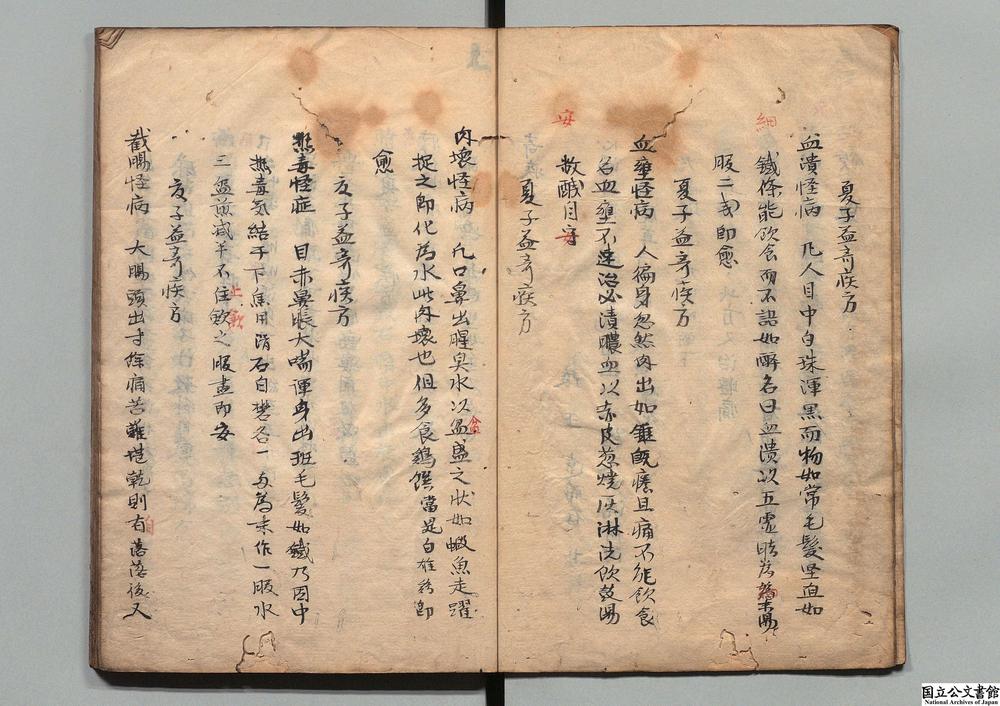 夏子益奇疾方
血潰怪病 凡人目中白珠渾黑而物如常毛髮坚直如
鐵條能飲食而不語如醉名曰血潰以五灵脂為末湯
細
服二戔即愈
夏子益奇疾方
血壅怪病 人徧身忽然肉出如錐既癢且痛不能飲食
名血壅不速治必潰膿血以赤皮葱焼灰淋洗飲豉湯
数盞自安
安
夏子益奇疾方
肉壞怪病 凡口鼻出腥臭水以盌盛之状如蝦魚走躍
捉之即化為水此肉壞也但多食鷄饌當是白雄鷄即
愈
夏子益奇疾方
熱毒怪症 目赤鼻脹大喘渾身出班毛髮如鐵乃因中
熱毒気結于下焦用滑石白礬各一戔為末作一服水
三盌煎减半不住飲之服盡即安
夏子益奇疾方
截腸怪病 大腸頭出寸餘痛苦難堪乾則自落落後又
国立公文書館
National Archives of Japan